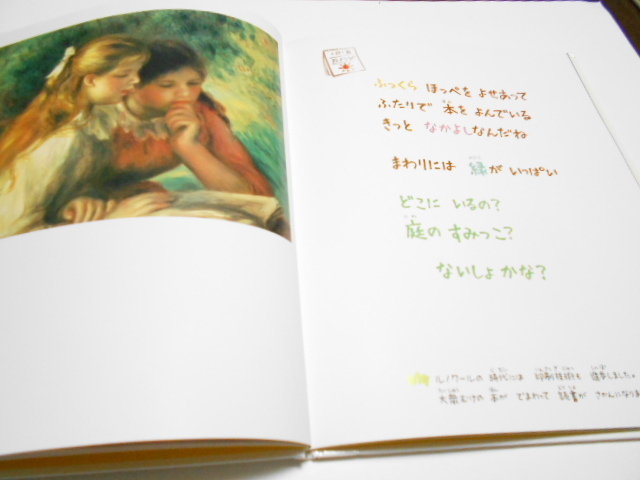 ふっくら ほっぺを よせあって
ふたりで 本を よんでいる
きっと なかよしなんだね
まわりには 緑が いっぱい
どこに いるの?
庭の すみっこ?
ないしょ かな?
ルノワールの 時代には 印刷技術も 進歩しました。
大衆むけの 本が でまわって 読書が さかんになりま